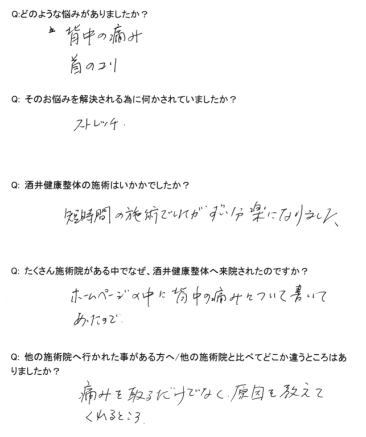 Q:どのような悩みがありましたか?
背中の痛み
首のコリ
Q: そのお悩みを解決される為に何かされていましたか?
ストレッチ.
Q: 酒井健康整体の施術はいかかでしたか?
短時間の施術でしたがずい分楽になりました、
Q: たくさん施術院がある中でなぜ、酒井健康整体へ来院されたのですか?
ホームページの中に背中の痛みについて書いて
あったので.
Q: 他の施術院へ行かれた事がある方へ/他の施術院と比べてどこか違うところはあ
りましたか?
痛みを取るだけでなく、原因を教えて
くれるところ.